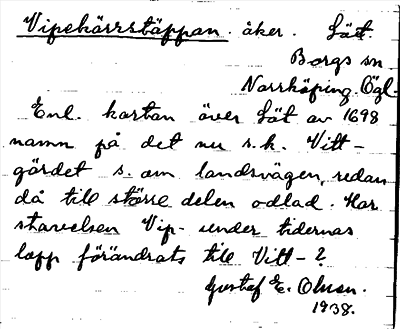 Vipekärrstäppan. åker. Lät.
Borgs sn.
Norrköping. Ögl.
Enl. kartan över Lät av 1698
namn på det nu s.k. Vitt-
gärdet s. om landsvägen, redan
då till större delen odlad. Har
stavelsen Vip- under tidernas
lopp förändrats till Vitt-?
Gustaf E. Olsson.
1938.